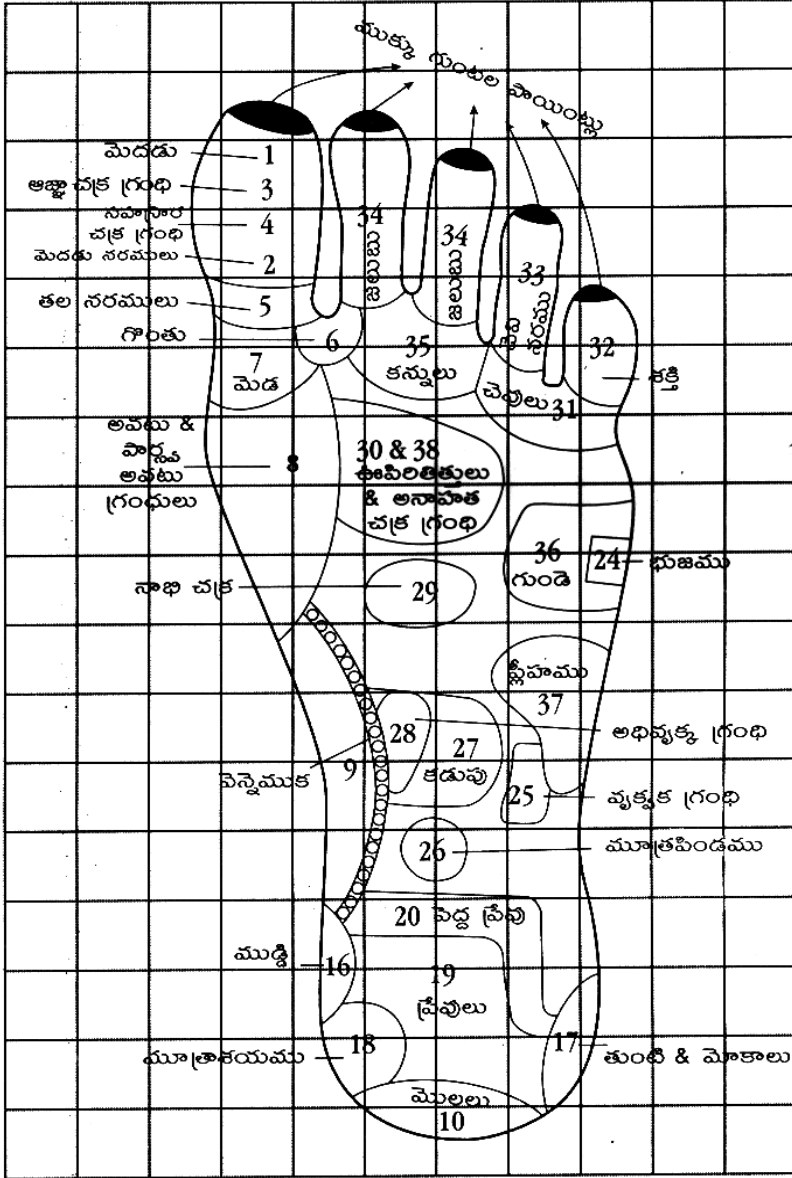 ముక్కు గుంటల పాయింట్లు
మెదడు 1
ఆజ్ఞా చక్ర గ్రంధి 3
సహస్రార
చక్ర గ్రంధి 4
మెదడు నరములు 2
తల నరములు 5
గొంతు 6
7
మెడ
34
34
33
నరము
32
శక్తి
35
కన్నులు
చెవులు 31
అవటు &
పార్శ్వ
అవటు
గ్రంధులు
8
30 & 38
ఊపిరితిత్తులు
& అనాహత
చక్ర గ్రంధి
36
గుండె
24 భుజము
నాభి చక్ర 29
ప్లీహము
37
28
అధివృక్క గ్రంధి
27
కడుపు
వెన్నెముక 9
25 వృక్వక గ్రంధి
26 మూత్రపిండము
20 పెద్ద ప్రేవు
ముడ్డి 16
19
ప్రేవులు
మూత్రాశయము 18
17 తుంటి & మోకాలు
మొలలు
10